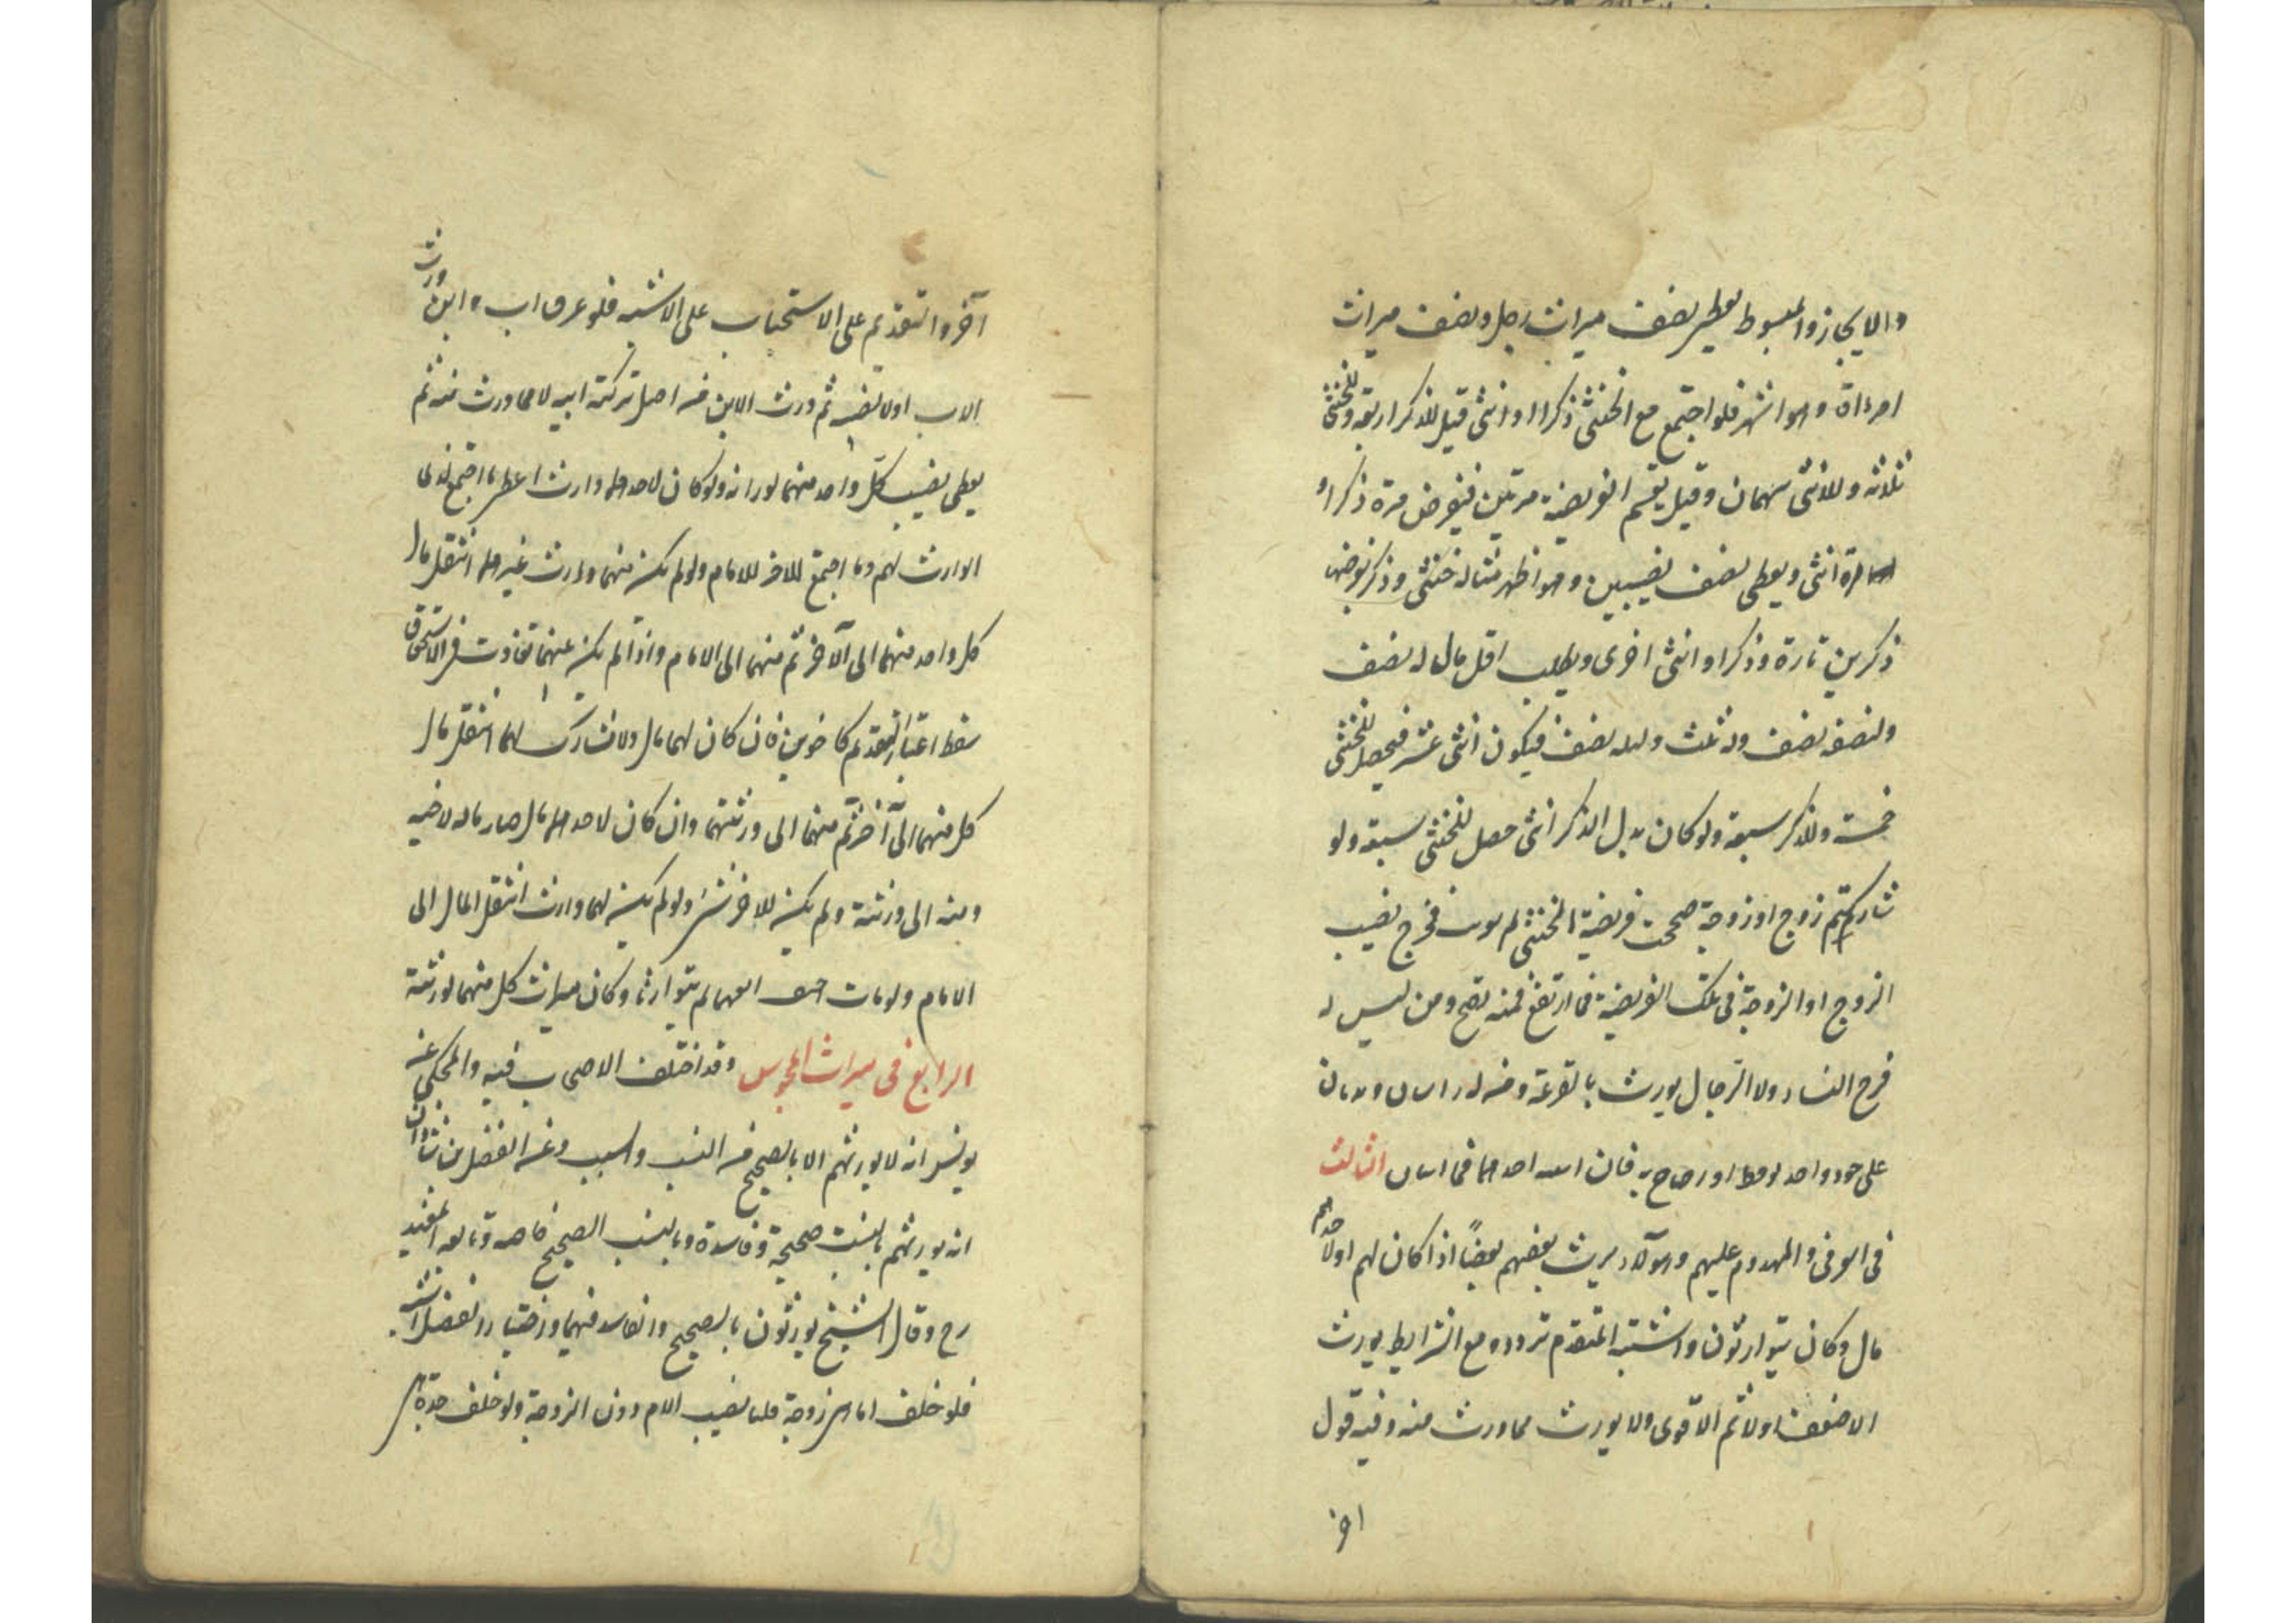 والايجاز والمبسوط يعطى نصف ميراث رجل ونصف ميراث
امرءاة وهو اشهر فلو اجتمع مع الخنثى ذكرا او انثى قيل للذكر اربعة وللخنثى
ثلاثة وللانثى سهمان وقيل يقسم الفريضة مرتين فيفرض مرة ذكرا و
مرة انثى ويعطى نصف نصيبين وهو اظهر مثاله خنثى وذكر نفرضها
ذكرين تارة وذكرا وانثى اخرى ويطلب اقل مال له نصف
ولنصفه نصف وله ثلث ولثلثه نصف فيكون اثنى عشر فيحصل للخنثى
خمسة وللذكر سبعة ولو كان بدل الذكر انثى حصل للخنثى سبعة ولو
شاركهم زوج او زوجة صححت فريضة الخنثى ثم ضرب مخرج نصيب
الزوج او الزوجة فى تلك الفريضة فما ارتفع فمنه تصح ومن ليس له
فرج النساء ولا الرجال يورث بالقرعة ومن له راسان وبدنان
على حقو واحد يوقظ او يصاح به فان انتبه احدهما فهما اثنان الثالث
فى الغرقى والمهدوم عليهم وهؤلاء يرث بعضهم بعضاً اذا كان لهم اولاحدهم
مال وكان يتوارثون واشتبه المتقدم تردد ومع الشرايط يورث
الاضعف اولا ثم الاقوى ولا يورث مما ورث منه وفيه قول
اخر
آخر والتقديم على الاستحباب على الاشبه فلو غرق اب وابن ورث
الاب اولا نصيبه ثم ورث الابن من اصل تركة ابيه لا مما ورث منه ثم
يعطى نصيب كل واحد منهما لوراثه ولو كان لاحدهما وارث اعطى ما اجتمع لذى
الوارث لهم وما اجتمع للاخر للامام ولو لم يكن منهما وارث غيرهما انتقل مال
كل واحد منهما الى الآخر ثم منهما الى الامام واذا لم يكن بينهما تفاوت فى الاستحقاق
سقط اعتبار التقديم كاخوين فان كان لهما مال ولا مشارك لهما انتقل مال
كل منهما الى آخر ثم منهما الى ورثتهما وان كان لاحدهما مال صار ماله لاخيه
ومنه الى ورثته ولم يكن للاخر شئ ولو لم يكن لهما وارث انتقل المال الى
الامام ولو ماتا حتف انفهما لم يتوارثا وكان ميراث كل منهما لورثته
الرابع فى ميراث المجوس وقد اختلف الاصحاب فيه والمحكى عن
يونس انه لا يورثهم الا بالصحيح من النسب والسبب وعن الفضل بن شاذان
انه يورثهم بالنسب صحيحه وفاسده وبالسبب الصحيح خاصة وتابعه المفيد
رح وقال الشيخ يورثون بالصحيح والفاسد فيهما واختيار الفضل اشبه
فلو خلف اما هى زوجة فلها نصيب الام دون الزوجة ولو خلف جدة هى